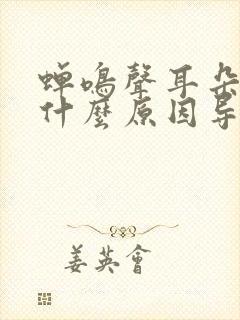 蟬鳴聲耳朵
什麼原因导
姜英會